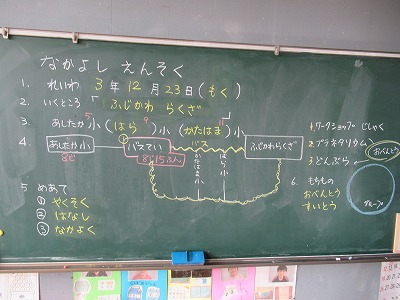 なかよし えんそく
1. れいわ 3年 12月 23日(もく)
2. いくところ「ふじかわ らくざ」
3. あしたか小5 (はら9)小 (かたはま11)小
4. あしたか小 8じ バスてい 8じ15ふん バス ふじかわらくざ
かたはま小
はら小
1.ワークショップ じしゃく
2.プラネタリウム
おべんとう
3.どんぶら
グループ
5 めあて
① やくそく
② はなし
③ なかよく
6. もちもの
おべんとう
すいとう